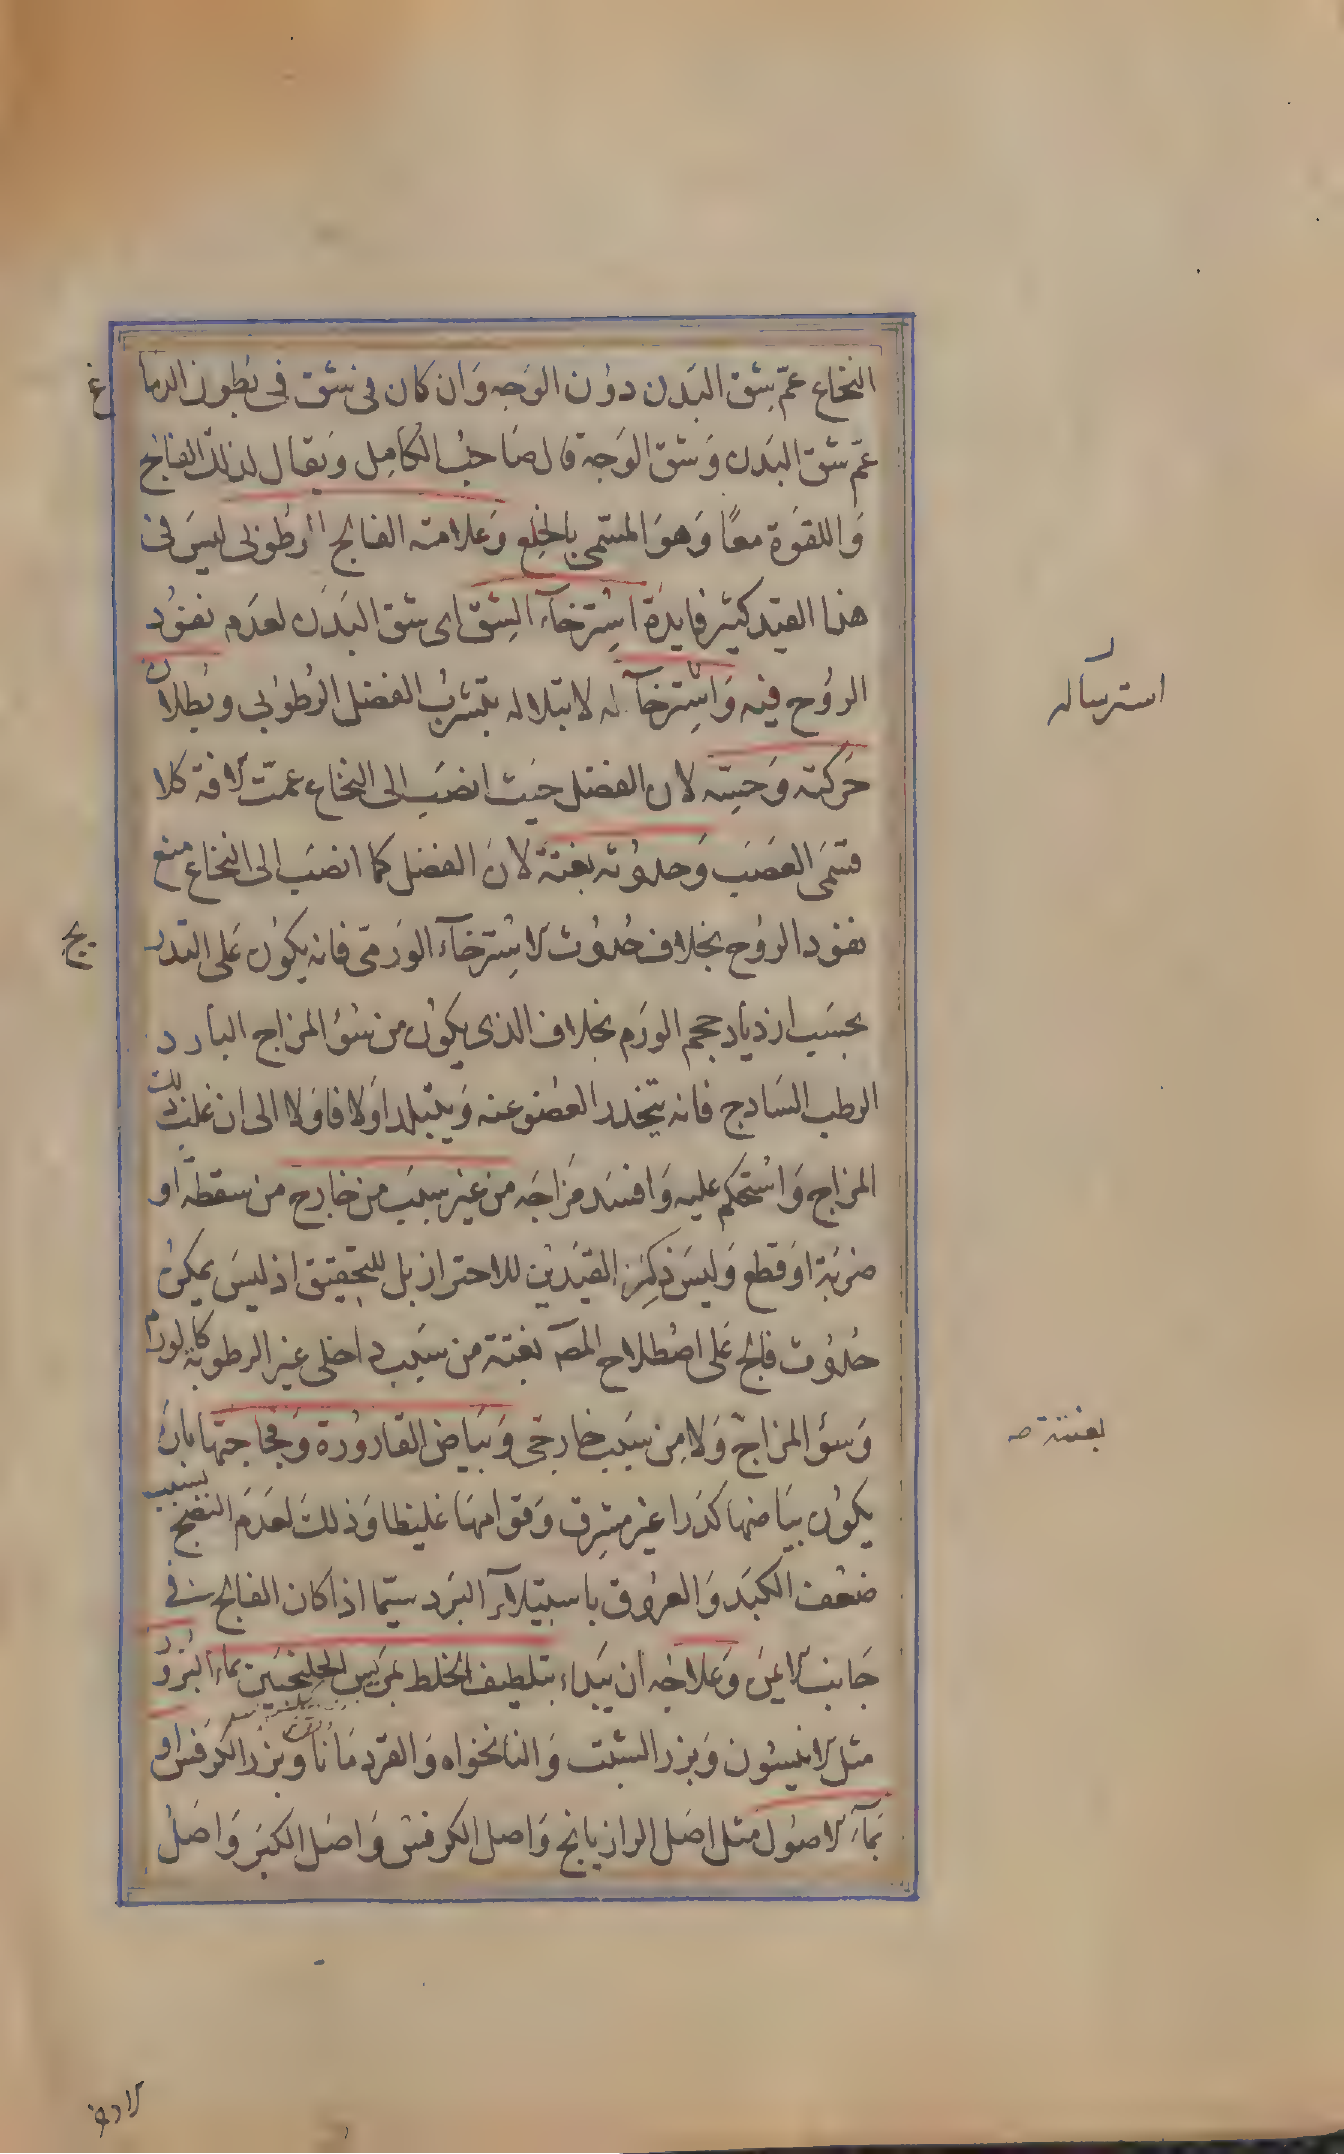 النخاع عمّ شق البَدن دوُن الوَجه وَان كان فى شق فى بُطون الدما
غ
عمّ شق البَدن وَشق الوَجه قال صَاحبُ الكَامِل وَيقال لذلك الفالج
وَاللقوَة معًا وَهوَ المسَمى بالخلع وَعلامته الفالج الرطوبى ليسَ فى
هذا القيد كثير فايدَة اسْترخآء الشق اى شق البَدَن لعدَم نفوُد
الروُح فيه وَاسْترخآ له لابتلاله بتشربُ الفضل الرُطوبى وبُطلان
استرساله
حَركته وَحسّه لان الفضل حيَث انصَب الى النخاع عمت الافة كلا
قسَمى العَصَب وَحدوُثه بغتةً لانَ الفضل كما انصَب الى النخاع منع
نفود الروُح بخلاف حُدوُث الاسْترخآء الوَرمّى فانه يكوُن عَلى التدر
يج
بحسَب ازدياد حجم الورَم بخلاف الذى يكوُن من سُؤ المزاج البارد
الرطب السَادج فانه يتخدر العضو عنه وَيتبلد اوَلا فاوَلا الى ان غلب ذلك
المزاج وَاسْتحكم عليه وَافسَد مَزاجَه من غير سبَب من خارج من سقطة او
ضربَة اوَ قطع وَليسَ ذكر القيَدَين للاحتراز بل للتحقيق اذ ليسَ يمكنُ
حُدوُث فالج عَلى اصْطلاح المصَ بغتة من سبَب داخلى غير الرطوبَة كالورم
وَسؤ المزاج وَلا مِن سبَب خارجَى وَبيَاض القارورُة وَفجاجتها بان
بغتة صه
يكوُن بيَاضها كدَرا غير مشِرق وَقوامهَا غليظا وَذلك لعَدَم النضج بسبب
ضعف الكبَد وَالعرُوق باستيلآء البَرد سيّما اذا كان الفالج فى
جَانب الايمن وَعلاجُه ان يبَدا بتلطيف الخلط بمَرس الجلنجبَين بماء البُزور
مثل الانيسُون وَبزر الشبت وَالنانخواه وَالقرد مَانا وبزر الكرفسَ او
بمآء الاصوُل مثل اصَل الرازيانج وَاصل الكرفسَ وَاصَل الكبَر وَاصَل
الادخر